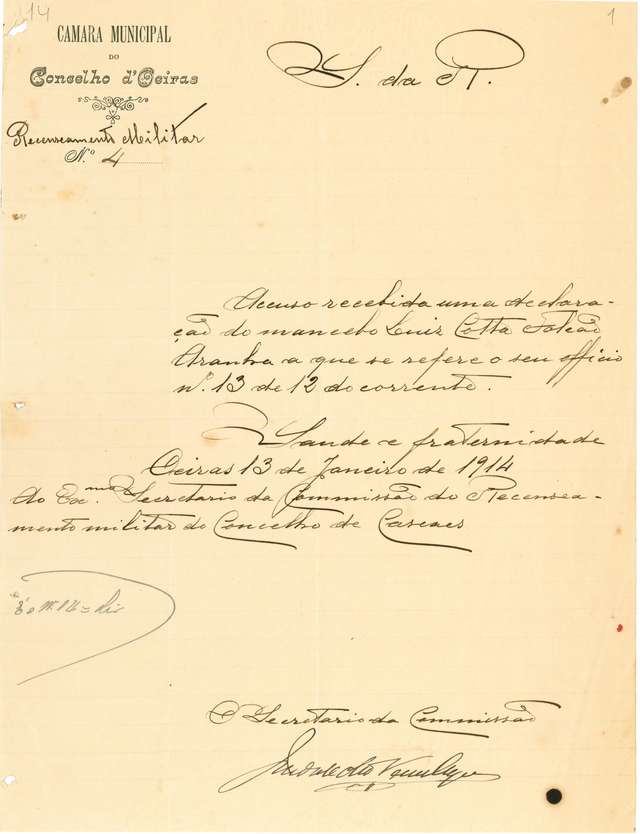 14
1
CAMARA MUNICIPAL
DO
Concelho d'Oeiras
Recenseamento Militar
N.º 4
S. da R.
Accuso recebida uma declara-
ção do mancebo Luiz Cotta Falcão
Aranha a que se refere o seu officio
nº. 13 de 12 do corrente.
Saude e fraternidade
Oeiras 13 de Janeiro de 1914
Ao Exmo. Secretario da Commissão do Recensea-
mento militar do Concelho de Cascaes
O Secretario da Commissão